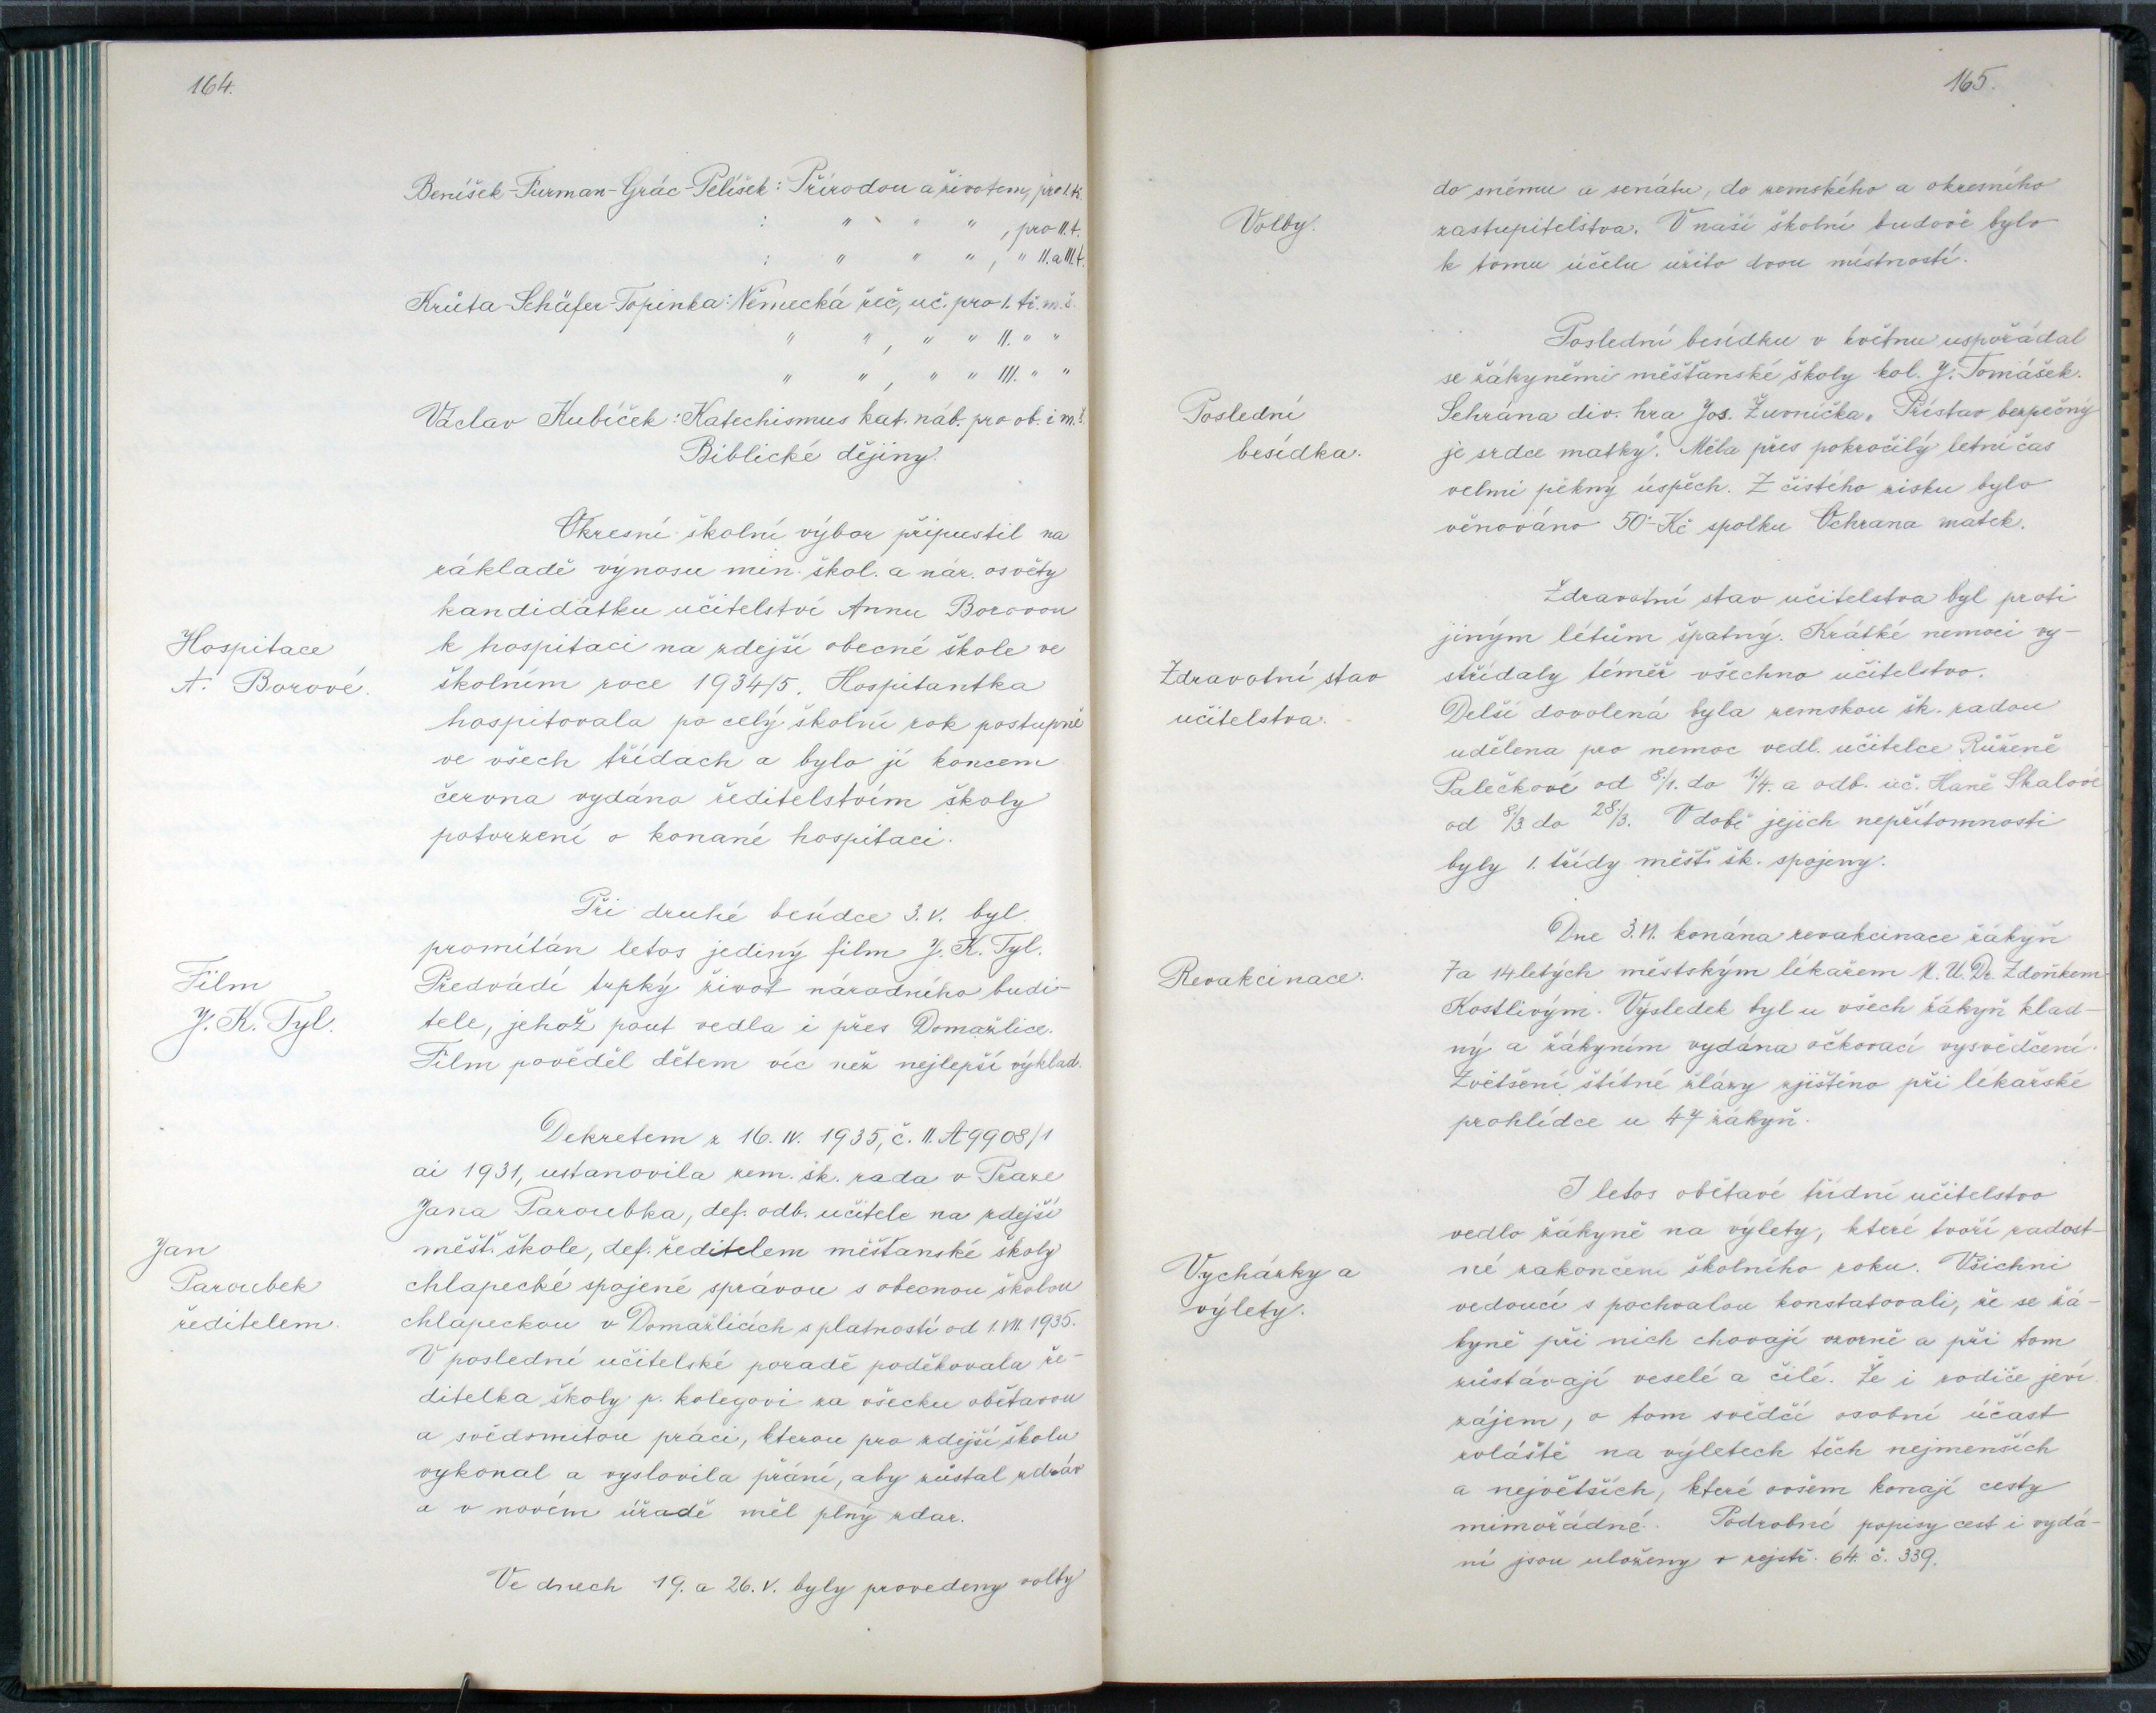 164.
Benišek-Furman-Grác-Pelíšek: Přírodou a životem, pro I. tř.
: " " " , pro II. t.
: " " " , " II. a III. t.
Krůta-Schäfer-Topinka: Německá řeč, uč. pro 1. tř. m. š.
" " , " " II. " "
" " , " " III. " "
Václav Kubíček: Katechismus kat. náb. pro ob. i m. š.
Biblické dějiny.
Okresní školní výbor připustil na
základě výnosu min. škol. a nár. osvěty
kandidátku učitelství Annu Borovou
Hospitace
A. Borové.
k hospitaci na zdejší obecné škole ve
školním roce 1934/5. Hospitantka
hospitovala po celý školní rok postupně
ve všech třídách a bylo jí koncem
června vydáno ředitelstvím školy
potvrzení o konané hospitaci.
Při druhé besídce 3. V. byl
promítán letos jediný film J. K. Tyl.
Film
J. K. Tyl.
Předvádí trpký život národního budi-
tele, jehož pout vedla i přes Domažlice.
Film pověděl dětem víc než nejlepší výklad.
Dekretem z 16. IV. 1935, č. II. A 9908/1
ai 1931, ustanovila zem. šk. rada v Praze
Jana Paroubka, def. odb. učitele na zdejší
Jan
Paroubek
ředitelem.
měšť. škole, def. ředitelem měšťanské školy
chlapecké spojené správou s obecnou školou
chlapeckou v Domažlicích s platností od 1. VII. 1935.
V poslední učitelské poradě poděkovala ře-
ditelka školy p. kolegovi za všecku obětavou
a svědomitou práci, kterou pro zdejší školu
vykonal a vyslovila přání, aby zůstal zdráv
a v novém úřadě měl plný zdar.
Ve dnech 19. a 26. V. byly provedeny volby
165.
do sněmu a senátu, do zemského a okresního
Volby.
zastupitelstva. V naší školní budově bylo
k tomu účelu užito dvou místností.
Poslední besídku v květnu uspořádal
se žákyněmi měšťanské školy kol. J. Tomášek.
Poslední
besídka.
Sehrána div. hra Jos. Žurníčka „Přístav bezpečný
je srdce matky". Měla přes pokročilý letní čas
velmi pěkný úspěch. Z čistého zisku bylo
věnováno 50·- Kč spolku Ochrana matek.
Zdravotní stav učitelstva byl proti
jiným létům špatný. Krátké nemoci vy-
Zdravotní stav
učitelstva.
střídaly téměř všechno učitelstvo.
Delší dovolená byla zemskou šk. radou
udělena pro nemoc vedl. učitelce Růženě
Palečkové od 8./1. do 1./4. a odb. uč. Haně Skalové
od 8./3 do 28./3. V době jejich nepřítomnosti
byly 1. třídy měšť. šk. spojeny.
Dne 3. VI. konána revakcinace žákyň
Revakcinace.
7 a 14 letých městským lékařem M. U. Dr. Zdeňkem
Kostlivým. Výsledek byl u všech žákyň klad-
ný a žákyním vydána očkovací vysvědčení.
Zvětšení štítné žlázy zjištěno při lékařské
prohlídce u 47 žákyň.
I letos obětavé třídní učitelstvo
vedlo žákyně na výlety, které tvoří radost-
Vycházky a
výlety.
né zakončení školního roku. Všichni
vedoucí s pochvalou konstatovali, že se žá-
kyně při nich chovají vzorně a při tom
zůstávají veselé a čilé. Že i rodiče jeví
zájem, o tom svědčí osobní účast
zvláště na výletech těch nejmenších
a největších, které ovšem konají cesty
mimořádné. Podrobné popisy cest i vydá-
ní jsou uloženy v rejstř. 64. č. 339.